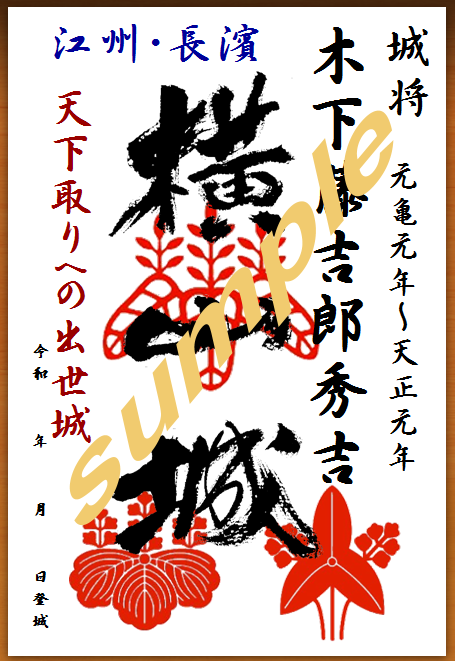 城将 元亀元年～天正元年
木下藤吉郎秀吉
江州・長濱
横山城
天下取りへの出世城
令和 年 月 日登城
sumple